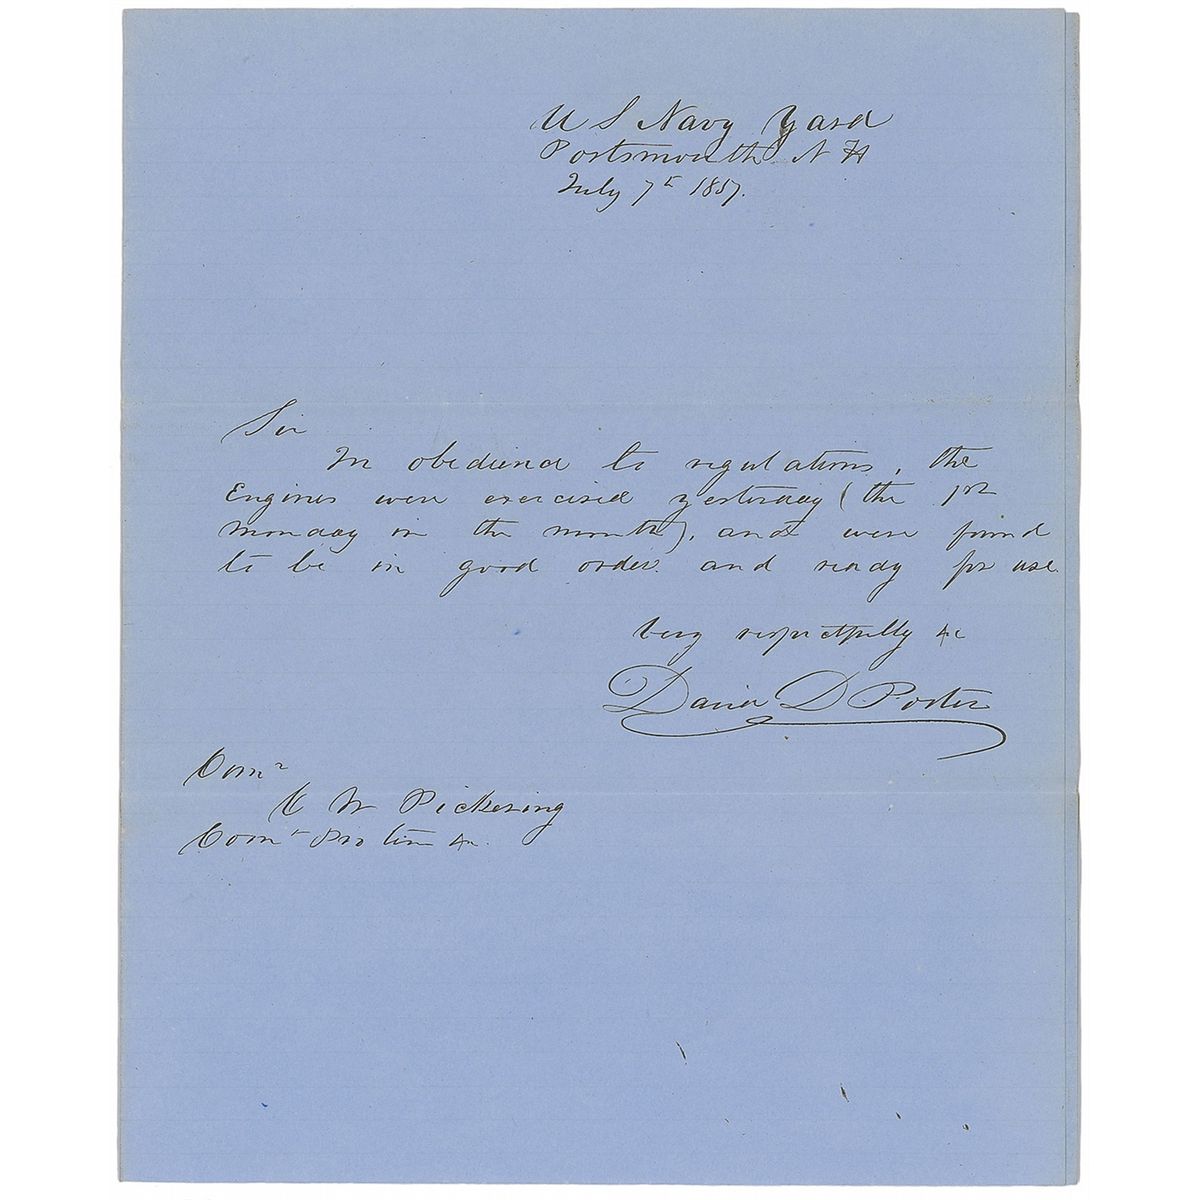 U S Navy Yard
Portsmouth N H
July 7th 1857.
Sir
In obedience to regulations, the
Engines were exercised yesterday (the 1st
Monday in the month), and were found
to be in good order and ready for use.
Very respectfully &c
David D Porter
Comr
C W Pickering
Comdt pro tem &c.